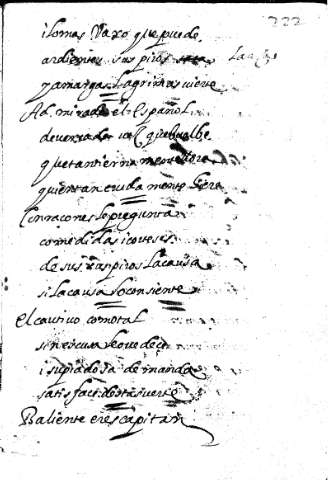 222
i lo mas Vaxo que puede
ardientes suspiros lança
y amargas lagrimas vierte
Admirado el Español
de ver cada vez que buelbe
que tan tierna mente llore
quien tan cruda mente hiere
Con racones le pregunta
comedidas i corteses
de sus suspiros la causa
si la causa lo consiente
El cautivo como tal
sin escusa le ovedece
i su piadosa demanda
satisface desta suerte
Baliente eres capitan